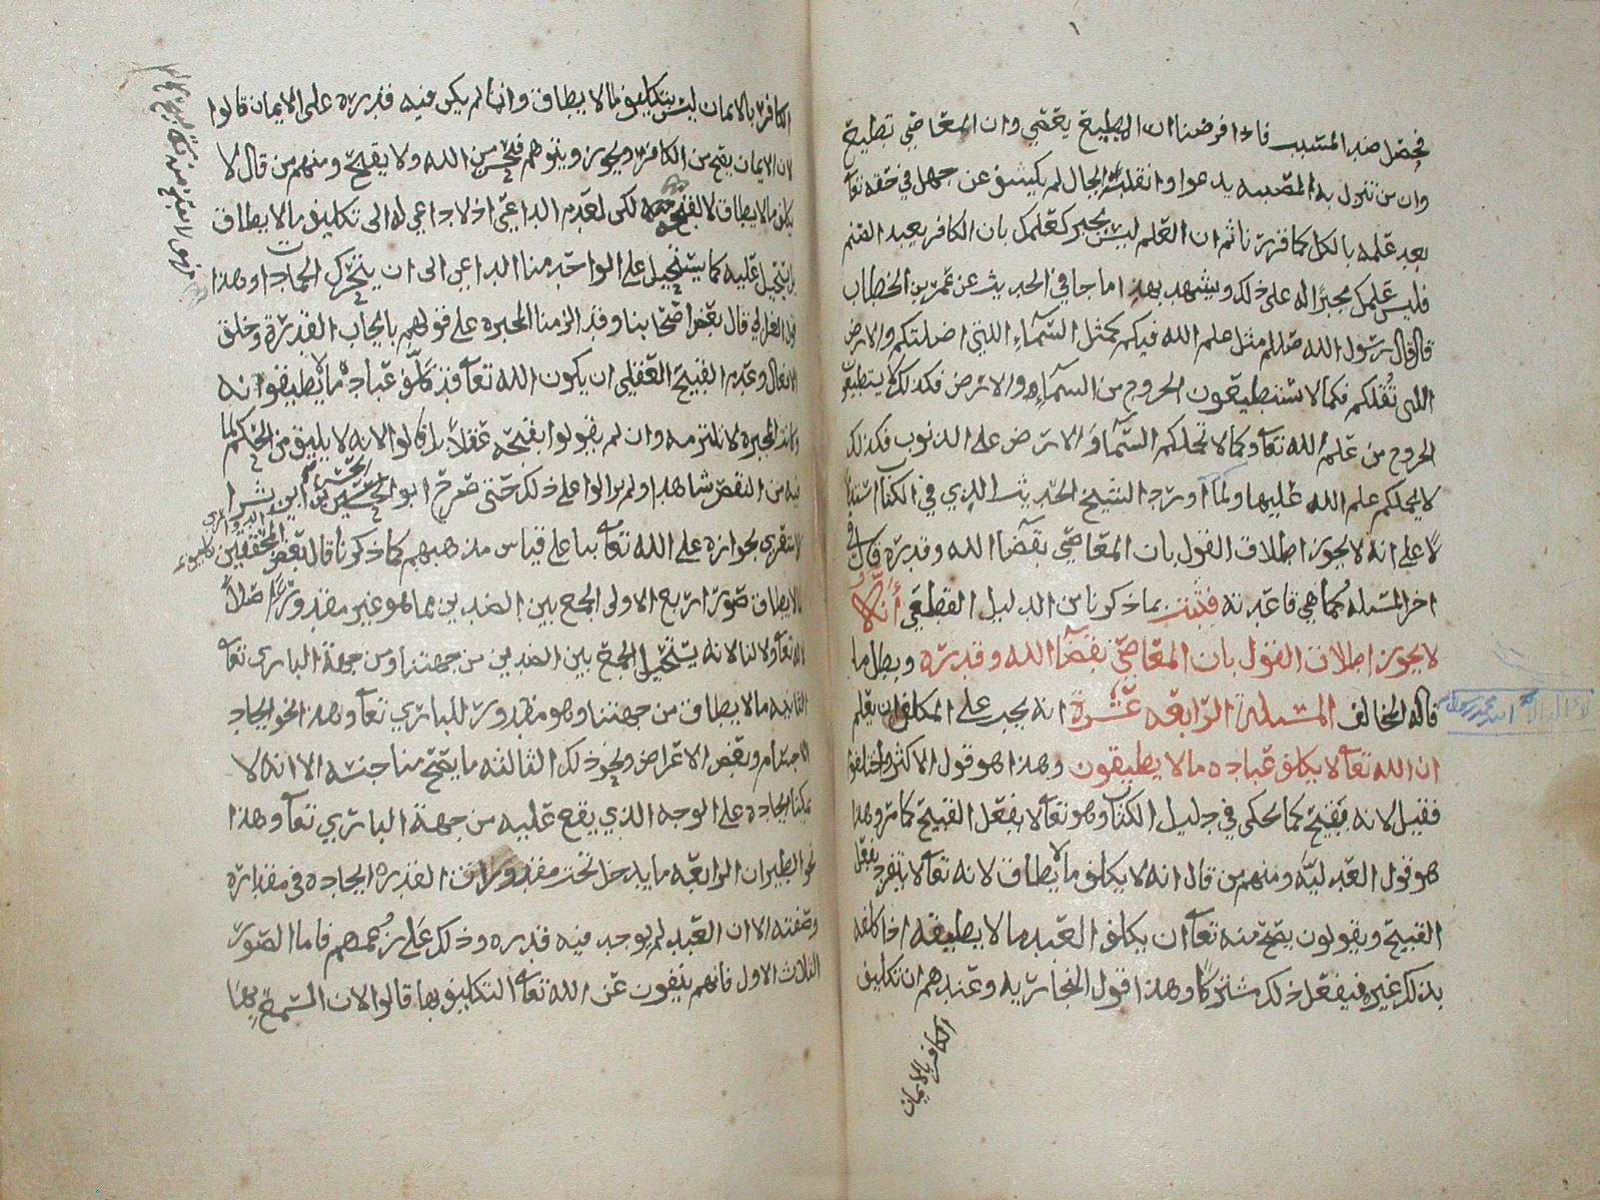 فحصل ضد المسبب فاذا فرضنا ان المطيع يعصي وان المعاصي تطيع
وان من تنزل به المصيبه يدعوا وانقلبت الحال لم يكشف عن جهل في حقه تعا
بعد علمه بالكل كما قررنا ثم ان العلم ليس بجبر كعلمك بان الكافر يعبد الصنم
فليس علمك مجبرًا له على ذلك ويشهد بهذا ما جا في الحديث عن عمر بن الخطاب
قال قال رسول الله صللم مثل علم الله فيكم كمثل السماء اللتي اظلتكم والارض
اللتي تقلكم فكما لا تستطيعون الخروج من السماء والارض فكذلك لا
الخروج من علم الله تعا وكما لا تحملكم السما والارض على الذنوب فكذلك
لا يحملكم علم الله عليها ولما اورد الشيخ الحديث الذي في الكتاب
لا على انه لا يجوز اطلاق القول بان المعاصي بقضا الله وقدره قال في
اخر المسئله كما هي قاعدته فثبت بما ذكرنا من الدليل القطعي أنه
لا يجوز اطلاق القول بان المعاصي بقضا الله وقدره وبطل ما
قاله المخالف المسئلة الرابعه عشرة انه يجب على المكلف ان يعلم
ان الله تعا لا يكلف عباده ما لا يطيقون وهذا هو قول الاكثر واختلفوا
فقيل لانه قبيح كما حكى في دليل الكتاب وهو تعا لا يفعل القبيح كما مر وهذا
هو قول العدليه ومنهم من قال انه لا يكلف ما لا يطاق لانه تعا لا يتفرد بفعل
القبيح ويقولون يصح منه تعا ان يكلف العبد ما لا يطيقه اذا كلفه
بذلك غيره فيفعل ذلك مشتركا وهذا قول النجاريه وعندهم ان تكليف
الكافر بالايمان
الكافر بالايمان ليس بتكليف ما لا يطاق وان لم يكن فيه قدره على الايمان قالوا
لان الايمان يصح من الكافر ويجوز ومنهم من الله ولا يقبح ومنهم من قال لا
يكلف ما لا يطاق لا لقبحه لكن لعدم الداعي اذ لا داعي له الى تكليف ما لا يطاق
بل يستحيل عليه كما يستحيل على الواحد منا الداعي الى ان يتحرك الجماد وهذا
قول الغزالي قال بعض اصحابنا وقد الزمنا المجبره على قولهم بايجاب القدرة وخلق
الافعال وعدم القبيح العقلي ان يكون الله تعا قد كلف عباده ما لا يطيقوا نه
وكانت المجبره لا تلتزمه وان لم يقولوا بقبحه عقلا بل قالوا لانه لا يليق من الحكيم لما
فيه من النقص شاهدا ولم يزالوا على ذلك حتى صرح ابو الحسن بن ابي بشر
الاشعري بجوازه على الله تعا بنا على قياس مذهبهم كما ذكرنا قال بعض المحققين
ما لا يطاق صور اربع الاولى الجمع بين الضدين مما هو غير مقدور اصلاً
لله تعا ولا لنا لانه يستحيل الجمع بين الضدين من جهتنا ومن جهة الباري تعا
الثانيه ما لا يطاق من جهتنا وهو مقدور للباري تعا وهذا نحو ايجاد
الاجسام وبعض الاعراض ونحو ذلك الثالثه ما يصح منا جنسه الا انه لا
يمكنا ايجاده على الوجه الذي يقع عليه من جهة الباري تعا وهذا
نحو الطيران الرابعه ما يدخل تحت مقدورات القدره ايجاده في مقداره
وصفته الا ان العبد لم يوجد فيه قدره وذلك على زعمهم فاما الصور
الثلاث الاول فانهم ينفون عن الله تعا التكليف بها قالوا لان